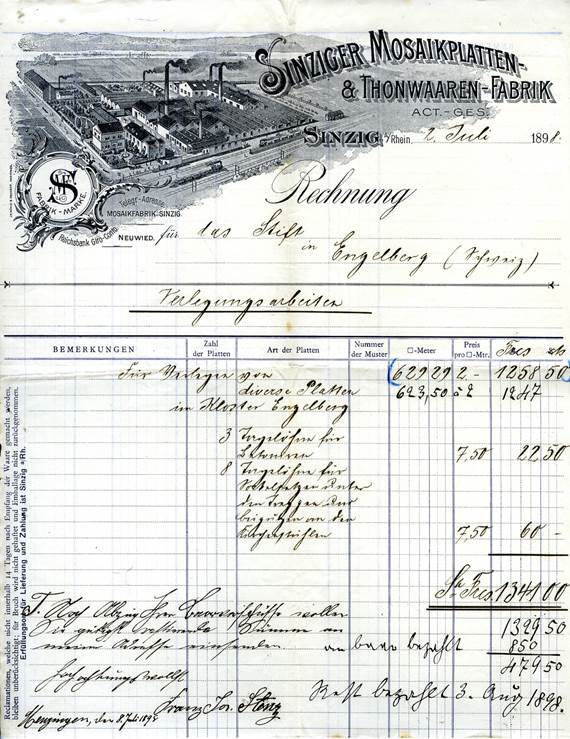 SINZIGER MOSAIKPLATTEN-
& THONWAAREN-FABRIK
ACT.-GES.
SINZIG a/Rhein. 2. Juli 1898.
FABRIK-MARKE.
Telegr.-Adresse
MOSAIKFABRIK-SINZIG.
Reichsbank Giro-Conto
NEUWIED.
Rechnung
für das Stift
in Engelberg (Schweiz)
Verlegungsarbeiten
BEMERKUNGEN Zahl der Platten Art der Platten Nummer der Muster □-Meter Preis pro □-Mtr. Frcs
Für Verlegen von 629 29 2.- 1258 50
diverse Platten 623,50 à 2 1247
im Kloster Engelberg
3 Taglöhne für
Betonieren 7,50 22 50
8 Taglöhne für
Sockelsetzen unter
den Treppen und
beiputzen an den
Kirchenstühlen 7,50 60 -
Frcs 1341 00
Noch Abzug Ihrer Baarvorschüsse wollen 1329 50
Sie gütigst restirende Summe an 850
meine Adresse einsenden. an baar bezahlt 479 50
Hochachtungsvollst
Franz Jos. Rest bezahlt 3. Aug 1898.
Menzingen, den 8. Juli 1898
Reclamationen, welche nicht innerhalb 14 Tagen nach Empfang der Waare gemacht werden,
bleiben unberücksichtigt; für Bruch wird nicht gehaftet und Emballage nicht zurückgenommen.
Erfüllungsort für Lieferung und Zahlung ist Sinzig a/Rh.